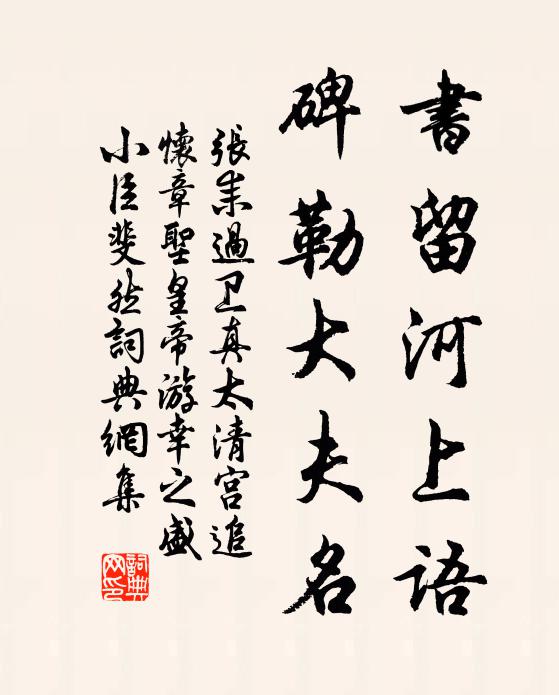 書留河上語
碑勒大夫名
張耒過卫真太清宮追
懷章聖皇帝游幸之盛
小臣斐然詞典網集
詞典網印